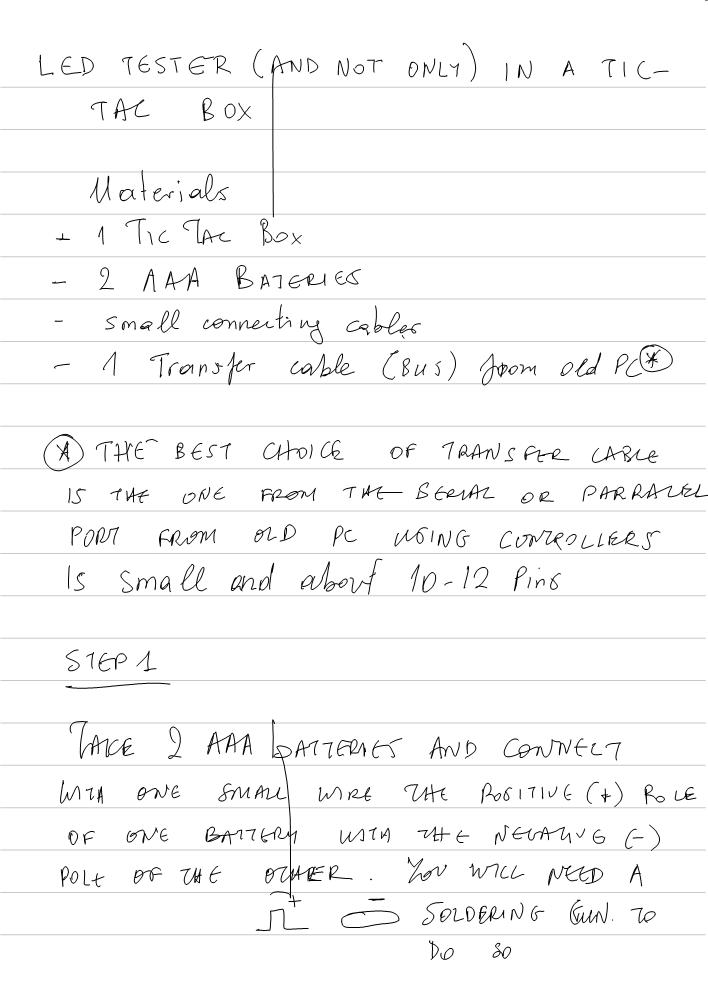 LED TESTER (AND NOT ONLY) IN A TIC-
TAC BOX
Materials
- 1 TIC TAC BOX
- 2 AAA BATERIES
- small connecting cables
- 1 Transfer cable (BUS) from old PC *
* THE BEST CHOICE OF TRANSFER CABLE
IS THE ONE FROM THE SERIAL OR PARRALEL
PORT FROM OLD PC USING CONTROLLERS
IS small and about 10-12 Pins
STEP 1
TAKE 2 AAA bATTERIES AND CONNECT
WITH ONE SMALL WIRE THE POSITIVE (+) POLE
OF ONE BATTERY WITH THE NEGATIVE (-)
POLE OF THE OTHER. YOU WILL NEED A
+ - SOLDERING GUN. TO
DO SO